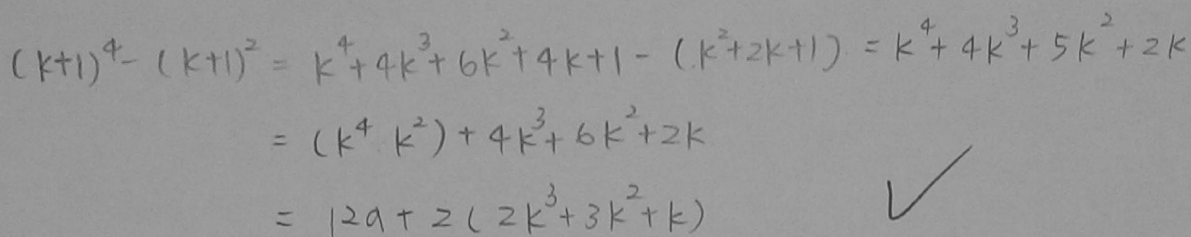 (k+1)⁴ - (k+1)² = k⁴+4k³+6k²+4k+1 - (k²+2k+1) = k⁴+4k³+5k²+2k
= (k⁴ k²) + 4k³+6k²+2k
= 12a + 2(2k³+3k²+k)